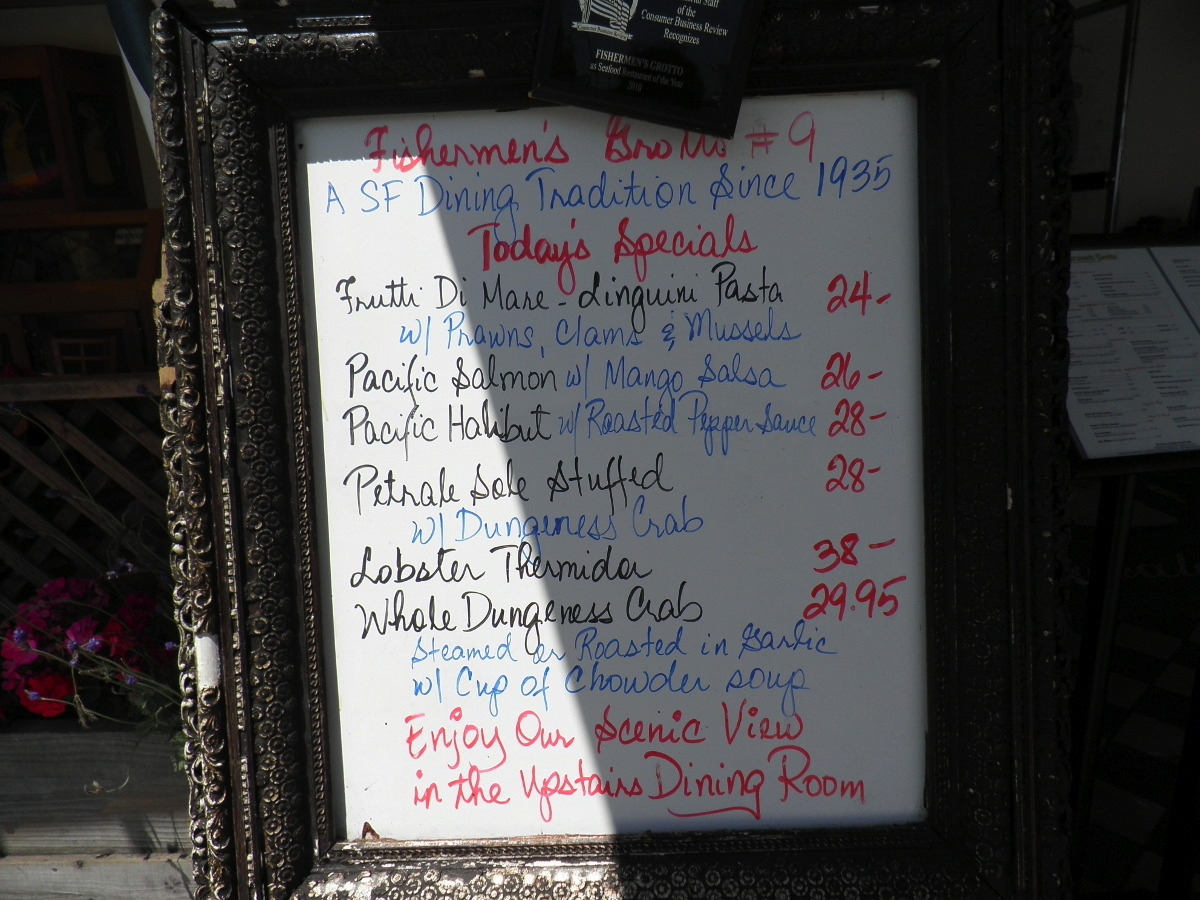 of the
Consumer Business Review
Recognizes
FISHERMEN'S GROTTO
as Seafood Restaurant of the Year
2010
Fishermen's Grotto #9
A SF Dining Tradition Since 1935
Today's Specials
Frutti Di Mare - Linguini Pasta 24-
w/ Prawns, Clams & Mussels
Pacific Salmon w/ Mango Salsa 26-
Pacific Halibut w/ Roasted Pepper Sauce 28-
Petrale Sole Stuffed 28-
w/ Dungeness Crab
Lobster Thermidor 38-
Whole Dungeness Crab 29.95
Steamed or Roasted in Garlic
w/ Cup of Chowder soup
Enjoy Our Scenic View
in the Upstairs Dining Room